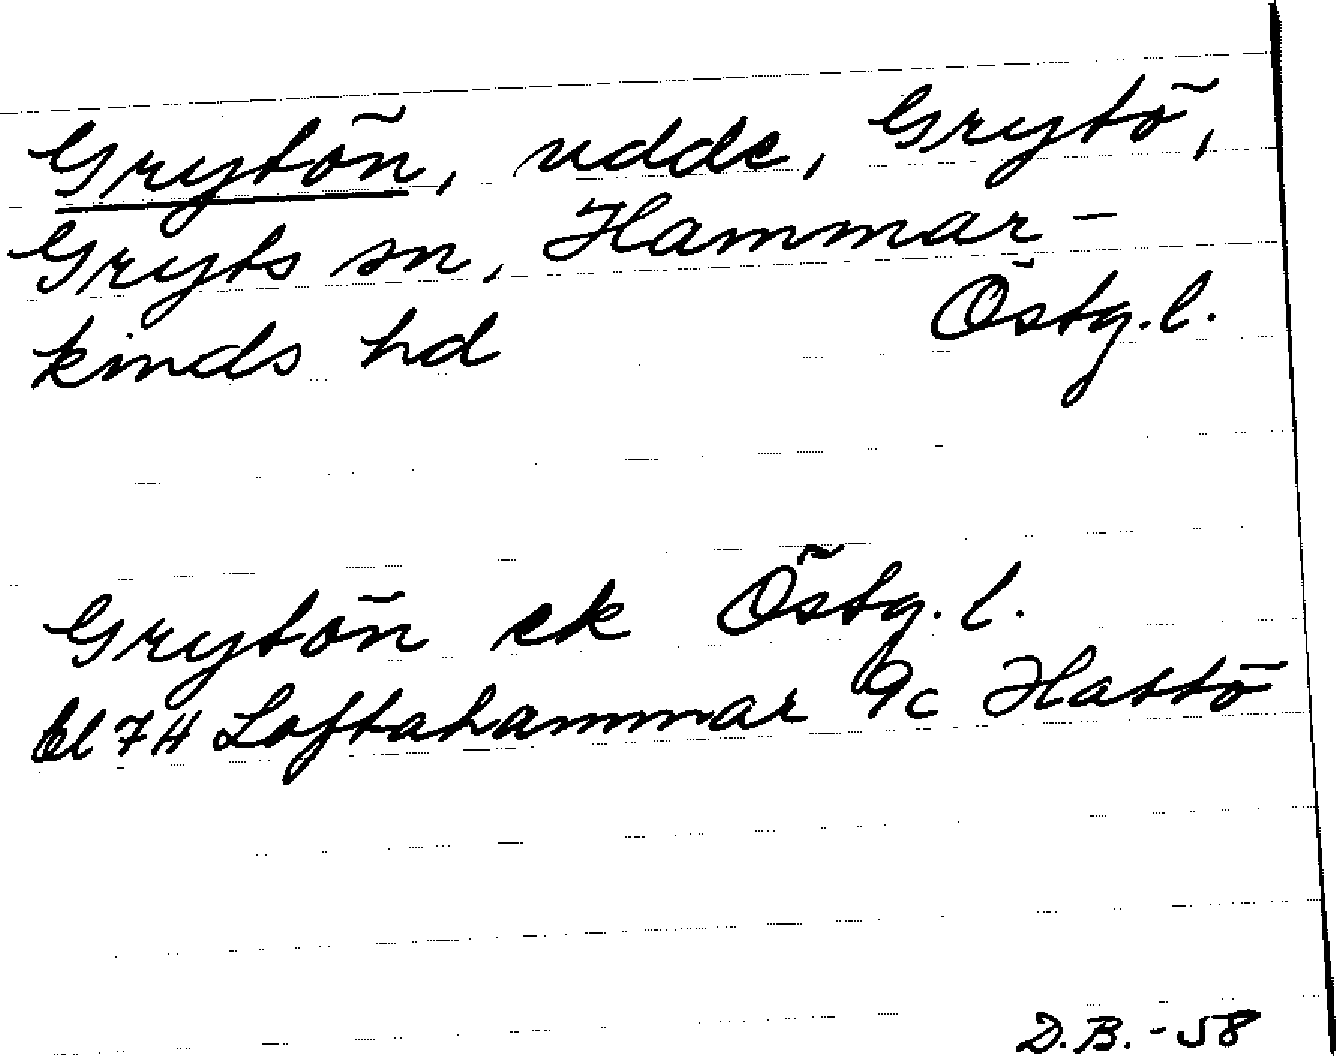 Grytön, udde, Grytö,
Gryts sn, Hammar-
kinds hd Östg.l.
Grytön ek Östg.l.
bl 7H Loftahammar 9c Hattö
D.B. -58